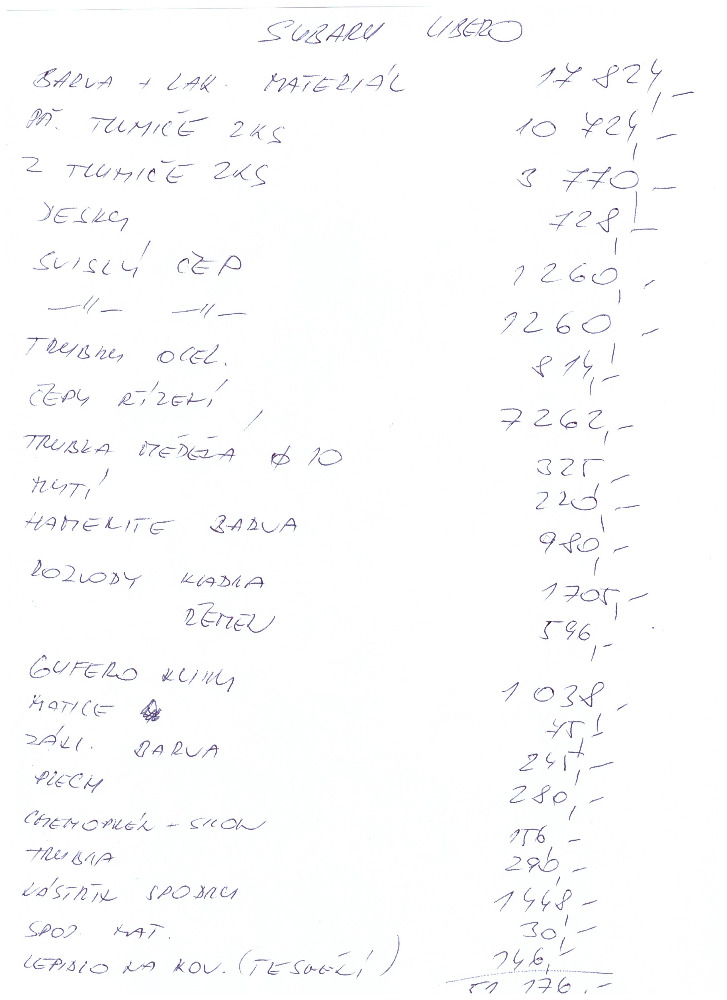 SUBARU LIBERO
BARVA + LAK. MATERIÁL 17 824,-
PŘ. TLUMIČE 2KS 10 724,-
Z TLUMIČE 2KS 3 770,-
DESKY 728,-
SVISLÝ ČEP 1260,-
—||— —||— 1260,-
TRUBKY OCEL. 814,-
ČEPY ŘÍZENÍ 7262,-
TRUBKA MĚDĚNÁ ϕ 10 325,-
NUTÍ 220,-
HAMERITE BARVA 980,-
ROZVODY KLADKA 1705,-
ŘEMEN 596,-
GUFERO KLIKY 1 038,-
MATICE 45,-
ZÁKL. BARVA 245,-
PLECH 280,-
CHEMOPRÉN - SILON 156,-
TRUBKA 290,-
NÁSTŘIK SPODKU 1448,-
SPOJ. MAT. 30,-
LEPIDLO NA KOV. (TĚSNĚNÍ) 146,-
51 176,-